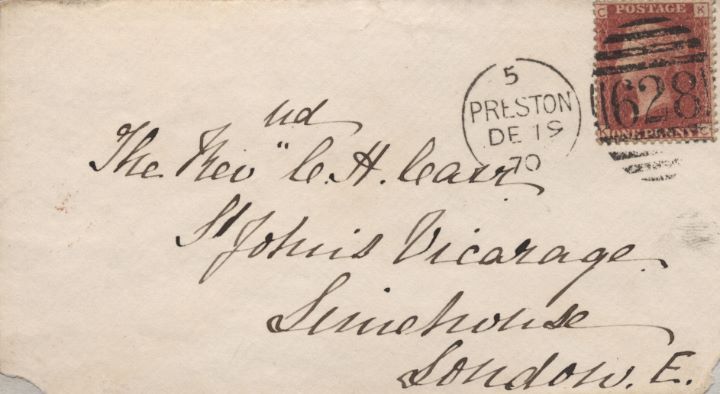 C K
POSTAGE
628
K ONE PENNY C
5
PRESTON
DE 19
70
The Revd " C. H. Carr
St John's Vicarage
Limehouse
London. E.